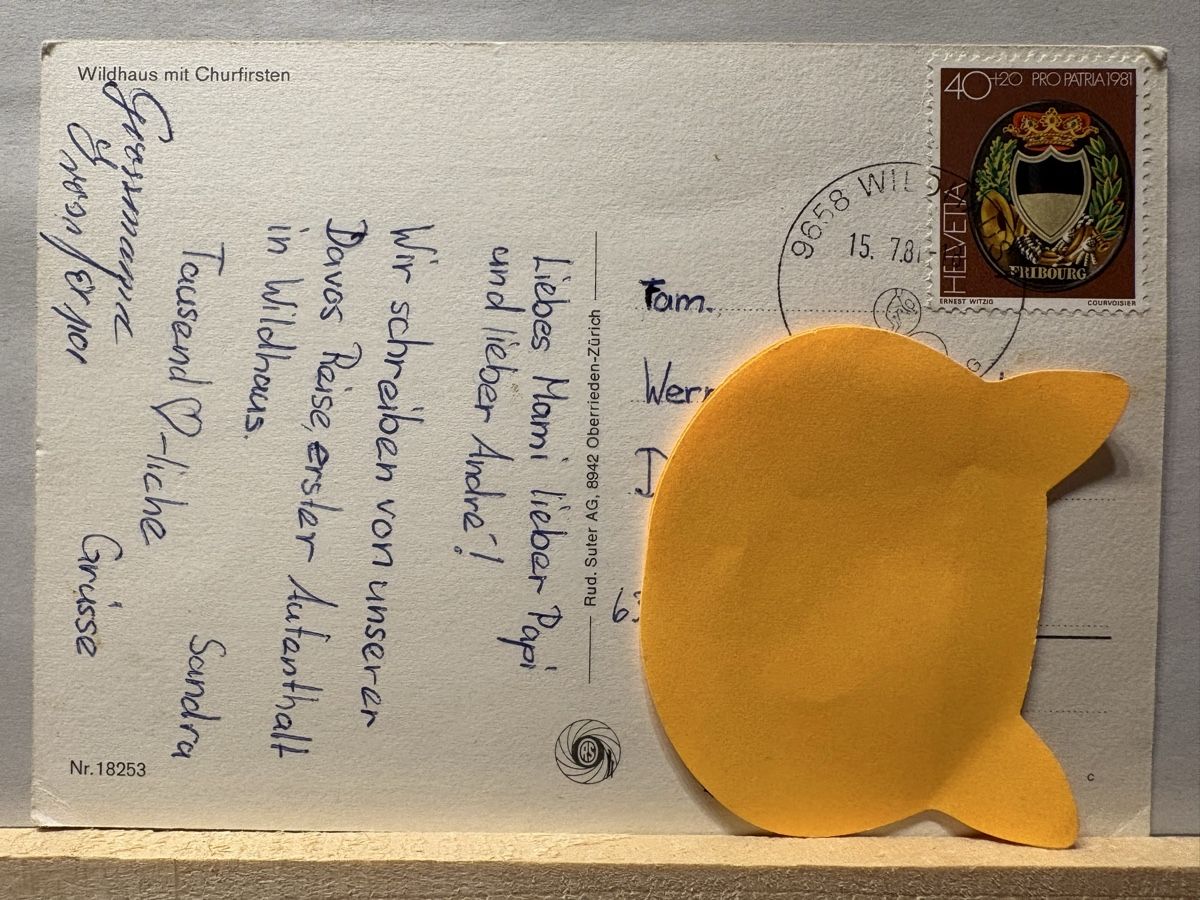 Wildhaus mit Churfirsten
Liebes Mami lieber Papi
und lieber André!
Wir schreiben von unserer
Davos Reise, erster Aufanthalt
in Wildhaus.
Tausend ♡-liche
Grüsse
Sandra
Grosmama
Nr. 18253
Rud. Suter AG, 8942 Oberrieden-Zürich
RS
40+20 PRO PATRIA 1981
HELVETIA
FRIBOURG
ERNEST WITZIG COURVOISIER
9658 WILD
15. 7.81
Fam.
Werr
c